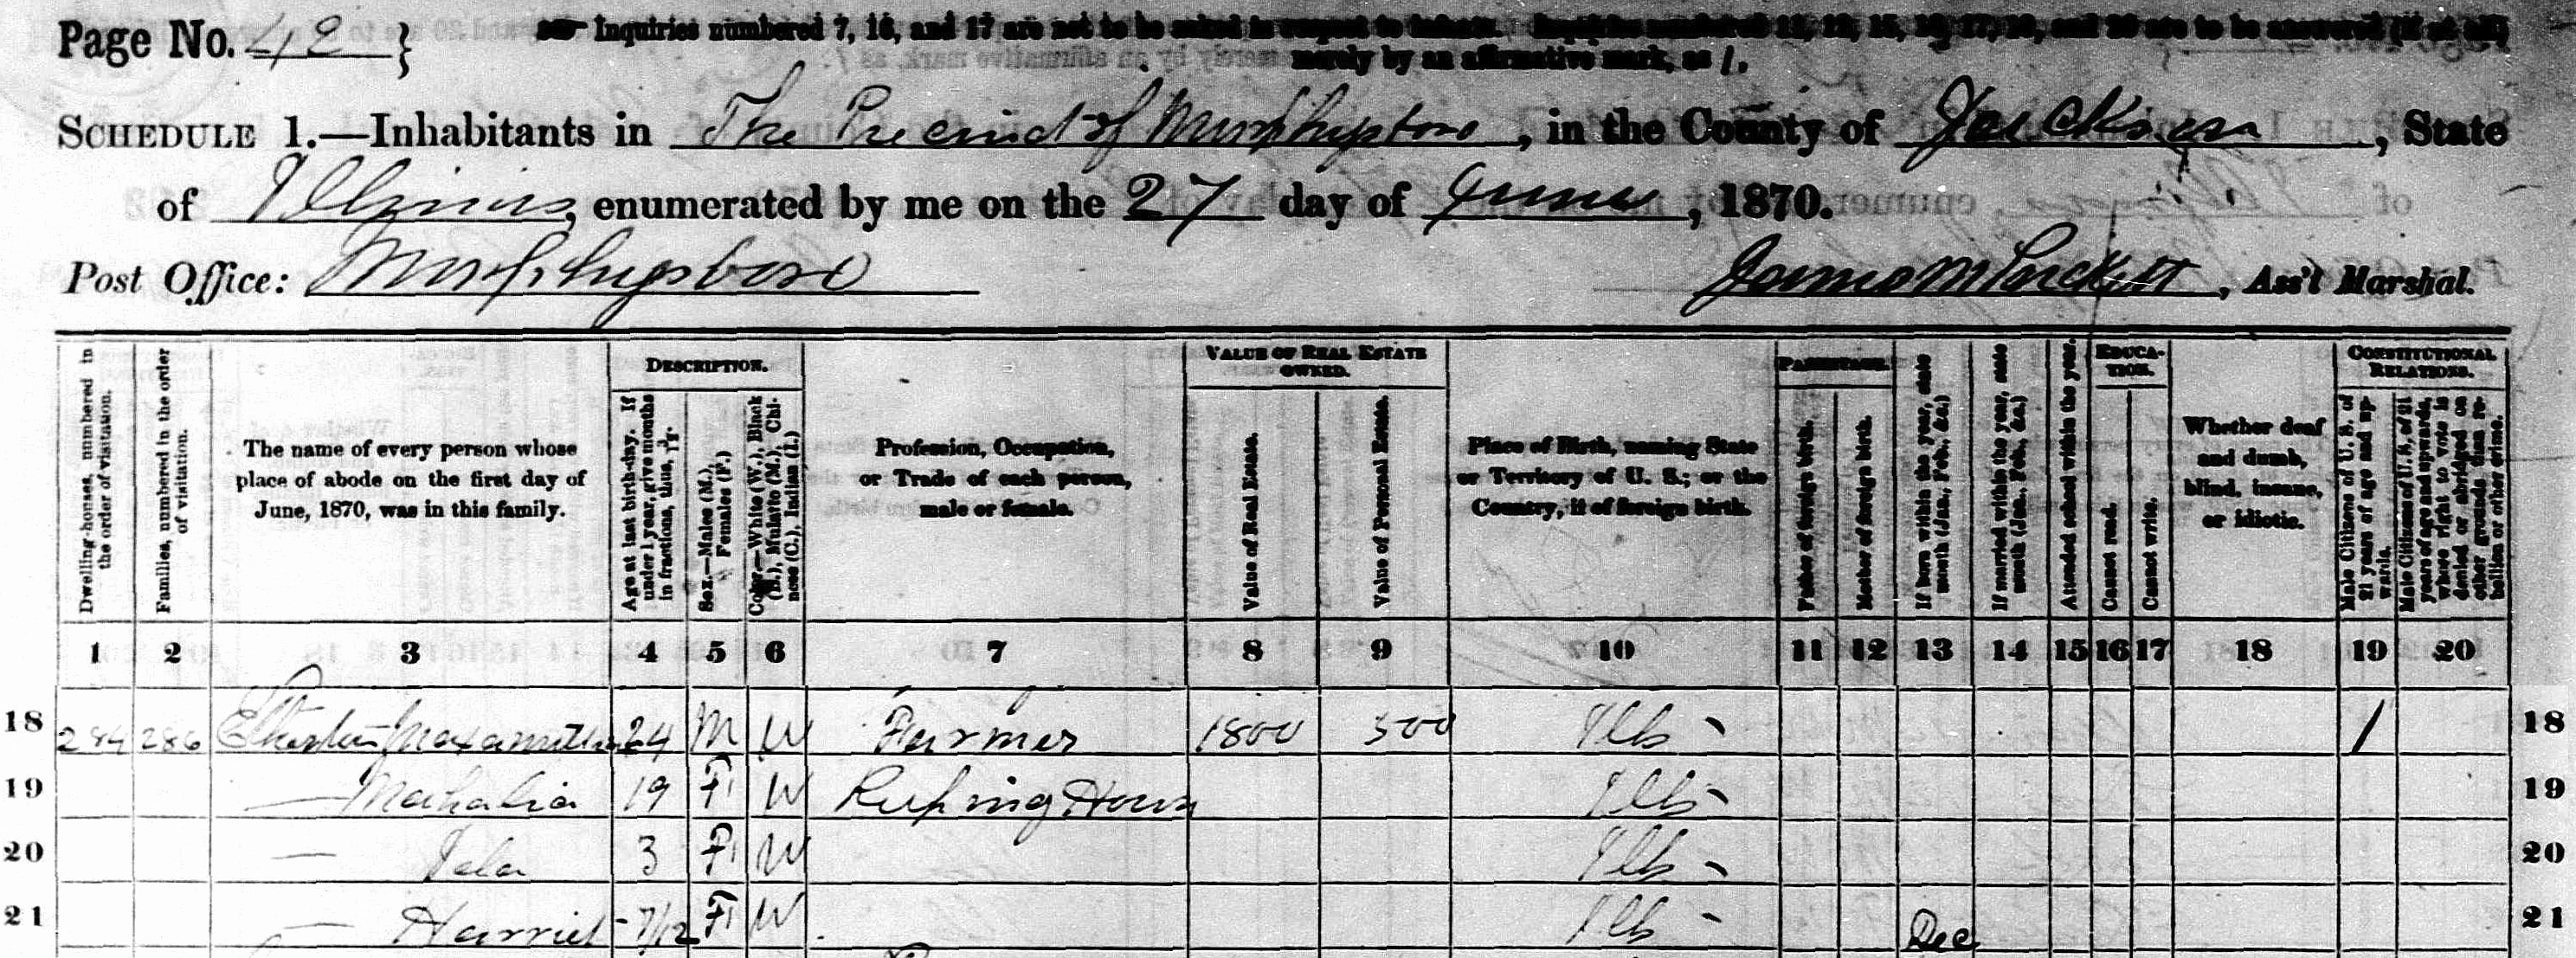 Page No. 42 }
Inquiries numbered 7, 16, and 17 are not to be asked in respect to infants. Inquiries numbered 11, 12, 15, 16, 17, 19, and 20 are to be answered (if at all)
merely by an affirmative mark, as /.
SCHEDULE 1.—Inhabitants in The Precinct of Murphysboro, in the County of Jackson, State
of Illinois, enumerated by me on the 27 day of June, 1870.
Post Office: Murphysboro
James M Puckett, Ass't Marshal.
Dwelling-houses, numbered in the order of visitation.
Families, numbered in the order of visitation.
The name of every person whose place of abode on the first day of June, 1870, was in this family.
DESCRIPTION.
Age at last birth-day. If under 1 year, give months in fractions, thus, 3/12.
Sex.—Males (M.), Females (F.)
Color.—White (W.), Black (B.), Mulatto (M.), Chinese (C.), Indian (I.)
Profession, Occupation, or Trade of each person, male or female.
VALUE OF REAL ESTATE OWNED.
Value of Real Estate.
Value of Personal Estate.
Place of Birth, naming State or Territory of U. S.; or the Country, if of foreign birth.
PARENTAGE.
Father of foreign birth.
Mother of foreign birth.
If born within the year, state month (Jan., Feb., &c.)
If married within the year, state month (Jan., Feb., &c.)
Attended school within the year.
EDUCATION.
Cannot read.
Cannot write.
Whether deaf and dumb, blind, insane, or idiotic.
CONSTITUTIONAL RELATIONS.
Male Citizens of U. S. of 21 years of age and upwards.
Male Citizens of U. S. of 21 years of age and upwards, whose right to vote is denied or abridged on other grounds than rebellion or other crime.
1 2 3 4 5 6 7 8 9 10 11 12 13 14 15 16 17 18 19 20
18 284 286 24 M W Farmer 1800 300 Ills 1 18
19 — Mahalia 19 F W Keeping House Ills 19
20 — Ida 3 F W Ills 20
21 — Harriet 7/12 F W Ills Dec 21